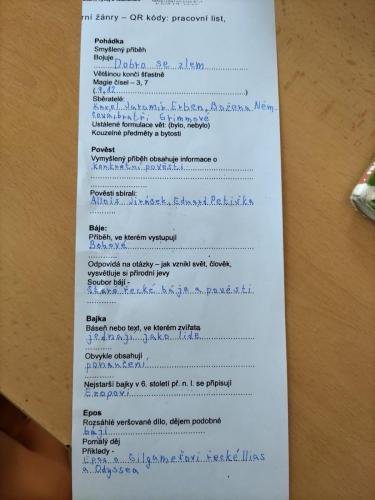 rní žánry – QR kódy: pracovní list,
Pohádka
Smyšlený příběh
Bojuje Dobro se zlem
Většinou končí šťastně
Magie čísel – 3, 7
(.9,12
Sběratelé:
Karel Jaromír Erben, Božena Něm
cová, bratři Grimmové
Ustálené formulace vět: (bylo, nebylo)
Kouzelné předměty a bytosti
Pověst
Vymyšlený příběh obsahuje informace o
konkrétní pověsti
Pověsti sbírali:
Alois Jirásek, Eduard Petiška
Báje:
Příběh, ve kterém vystupují
Bohové
Odpovídá na otázky – jak vznikl svět, člověk,
vysvětluje si přírodní jevy
Soubor bájí -
Staré řecké báje a pověsti
Bajka
Báseň nebo text, ve kterém zvířata
jednají jako lidé
Obvykle obsahují
ponaučení
Nejstarší bajky v 6. století př. n. l. se připisují
Ezopovi
Epos
Rozsáhlé veršované dílo, dějem podobné
báji
Pomalý děj
Příklady -
Epos o Gilgamešovi řecké Ilias
a Odyssea